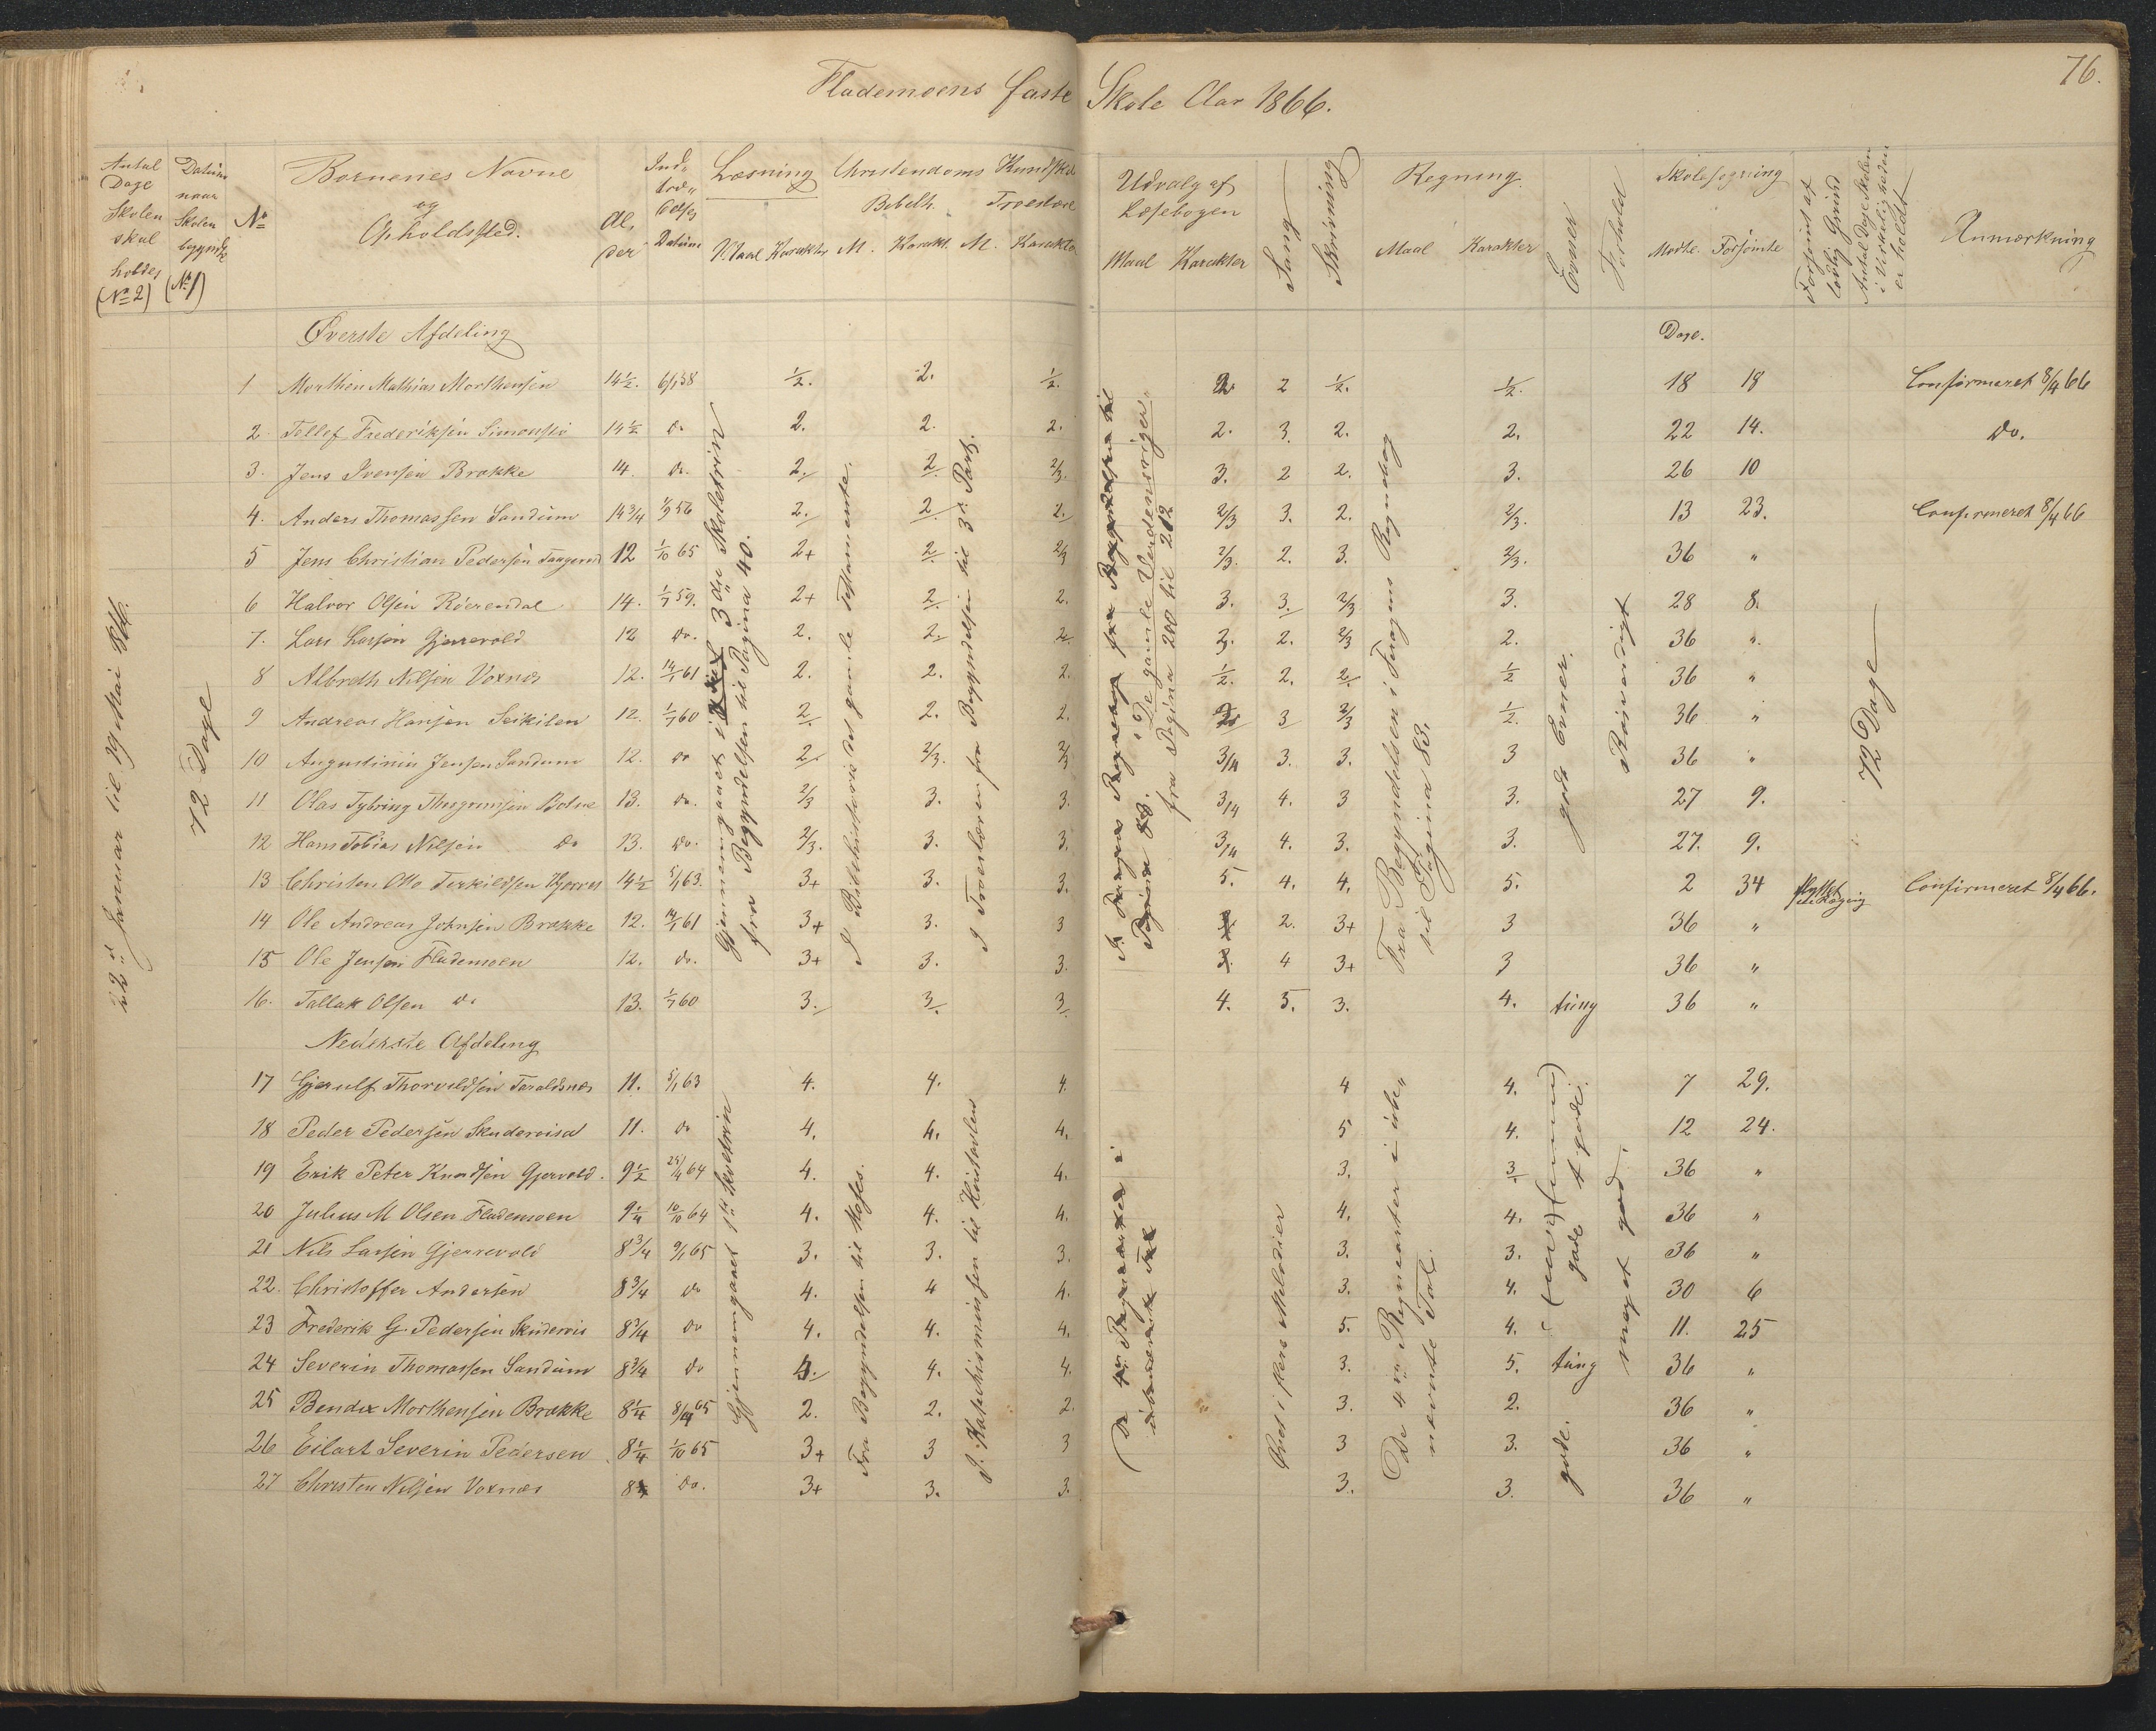 76.
Flademoens faste Skole Aar 1866.
Antal Dage Skolen skal holdes (No 2)
Datum naar Skolen begyndte (No 1)
No
Børnenes Navne og Opholdssted.
Al, der
Ind, træd, elses Datum
Læsning Maal Karakter
Christendoms Kundskab
Bibelh. M. Karakt.
Troeslære M. Karakter
Udvalg af Læsebogen Maal Karakter
Sang
Skrivning
Regning. Maal Karakter
Evner
Forhold
Skolesøgning Mødte. Forsømte
Forsømt af lovlig Grund
Antal Dage Skolen i Virkeligheden er holdt
Anmærkning
Øverste Afdeling
Dage.
1 Morthen Mathias Morthensen 14½. 6/1 58 ½. 2. ½. 2. 2 ½. ½. 18 18 Confirmeret 8/4 66
2 Tellef Frederiksen 14½ do 2. 2. 2. 2. 3. 2. 2. 22 14. do.
3. Jens Svensen Brække 14. do. 2. 2 2/3. 3. 2 2. 3. 26 10
4. Anders Thomassen Sandum 14¾ 56 2. 2 2. 2/3 3. 2. 2/3. 13 23. Confirmeret 8/4 66
5 Jens Christian Pedersen 12 1/10 65 2+ 2 2/3 2/3. 2. 3. 2/3. 36 "
6 Halvor Olsen Røerendal 14. 1/7 59. 2+ 2. 2. 3. 3. 2/3 3. 28 8.
7. Lars Larsen Gjerrevold 12 do. 2. 2. 2 3. 2. 2/3 2. 36 ".
8 Albreth Nilsen Voxnes 12. 14/1 61 2. 2. 2. ½. 2. 2. ½ 36 "
9 Andreas Hansen 12. 1/7 60 2 2. 2. 2 3 2/3 ½. 36 "
10 Augustinius Jensen Sandum 12. do 2. 2/3. 2/3 3/4 3. 3. 3 36 "
11 Olas Tybring 13. do. 2/3 3. 3. 3/4 4. 3 3. 27 9.
12 Hans Tobias Nilsen do 13. do. 2/3. 3. 3. 3/4 4. 3. 3. 27. 9.
13 Christen Otto Terkildsen 14½ 5/1 63. 3+ 3. 3. 5. 4. 4. 5. 2 34 Confirmeret 8/4 66.
14 Ole Andreas Johnsen Brække 12. 14/1 61 3+ 3. 3 3. 2. 3+ 3 36 "
15 Ole Jensen Flademoen 12. do. 3+ 3. 3. 3. 4 3+ 3 36 "
16. Tallak Olsen do 13. 1/7 60 3. 3. 3 4. 5. 3. 4. tung 36 "
Nederste Afdeling
17 Gjerulf Thorvaldsen Taraldsnes 11. 5/1 63 4. 4. 4. 4 4. 7 29.
18 Peder Pedersen 11. do 4. 4. 4. 5 4. 12 24.
19 Erik Peter Knudsen Gjervold. 9½ 25/4 64 4. 4. 4. 3. 3 36 "
20 Julius M Olsen Flademoen 9¼ 10/10 64 4. 4. 4. 4. 4. 36 "
21 Nils Larsen Gjerrevold 8¾ 9/1 65 3. 3. 3. 3. 3. 36 "
22. Christoffer Andersen 8¾ do 4. 4 4. 3. 4. 30 6
23 Frederik G. Pedersen 8¾ do 4. 4. 4. 5. 4. 11. 25
24 Severin Thomassen Sandum 8¾ do 4. 4. 3. 5. tung 36 "
25 Bendix Morthensen Brække 8¼ 65 2. 2. 2. " 3. 2. 36 "
26 Eilart Severin Pedersen 8¼ 1/10 65 3+ 3 3 3 3. 36 "
27 Christen Nilsen Voxnes 8¼ do. 3+ 3. 3. 3. 3. 36 "
22de Januar til 19 Mai
72 Dage
Gjennemgaaet i 3die Skoletrin fra Begyndelsen til Pagina 40.
I Bibelhistorie det gamle Testamente.
I Troeslæren fra Begyndelsen til 3die Part.
"De gamle Verdensriger" fra Pagina 200 til 212
Fra Begyndelsen i Fragens Regnebog til Pagina 83.
gode Evner.
Rosværdigt
72 Dage
Gjennemgaaet 1ste Skoletrin
Fra Begyndelsen til Moses.
I Katechismusen til Huustavlen
Øvet i flere Melodier
De 4re Regnearter i ube„ nævnte Tal.
gode
meget god.